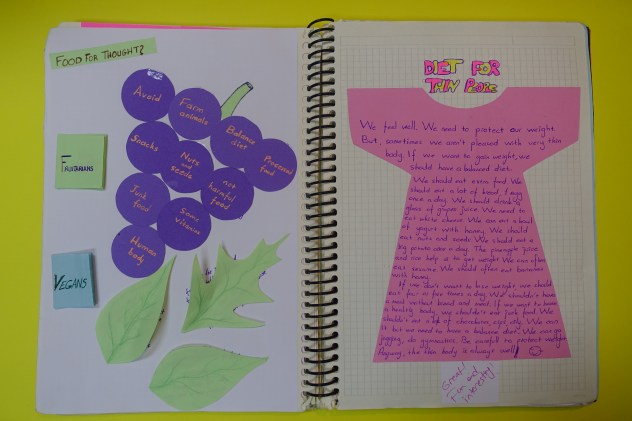 FOOD FOR THOUGHT?
Avoid
Farm
animals
Balance
diet
Processed
food
Snacks
Nuts
and
seeds
not
harmful
food
Junk
food
Some
vitamine
Human
body
FRUITARIANS
VEGANS
DIET FOR
THIN PEOPLE
We feel well. We need to protect our weight.
But, sometimes we aren't pleased with very thin
body. If we want to gain weight, we
should have a balanced diet.
We should eat even food. We
should eat a lot of bread,
once a day. We should drink a
glass of grape juice. We need to
eat white cheese. We can eat a bowl
of yogurt with honey. We should
eat nuts and seeds. We should eat a
big potato once a day. The pineapple juice
and rice help us to get weight. We can often
eat sesame. We should often eat bananas
with honey.
If we don't want to lose weight, we should
eat four or five times a day. We shouldn't have
a meal without bread and meat. If we want to have
a healthy body, we shouldn't eat junk food. We
shouldn't eat a lot of chocolates, eggs, jelly. We can
it but we need to have a balance diet. We can go
jogging, do gymnastics. Be careful to protect weight.
the thin body is always well!
Great!
Fun and
interesting!